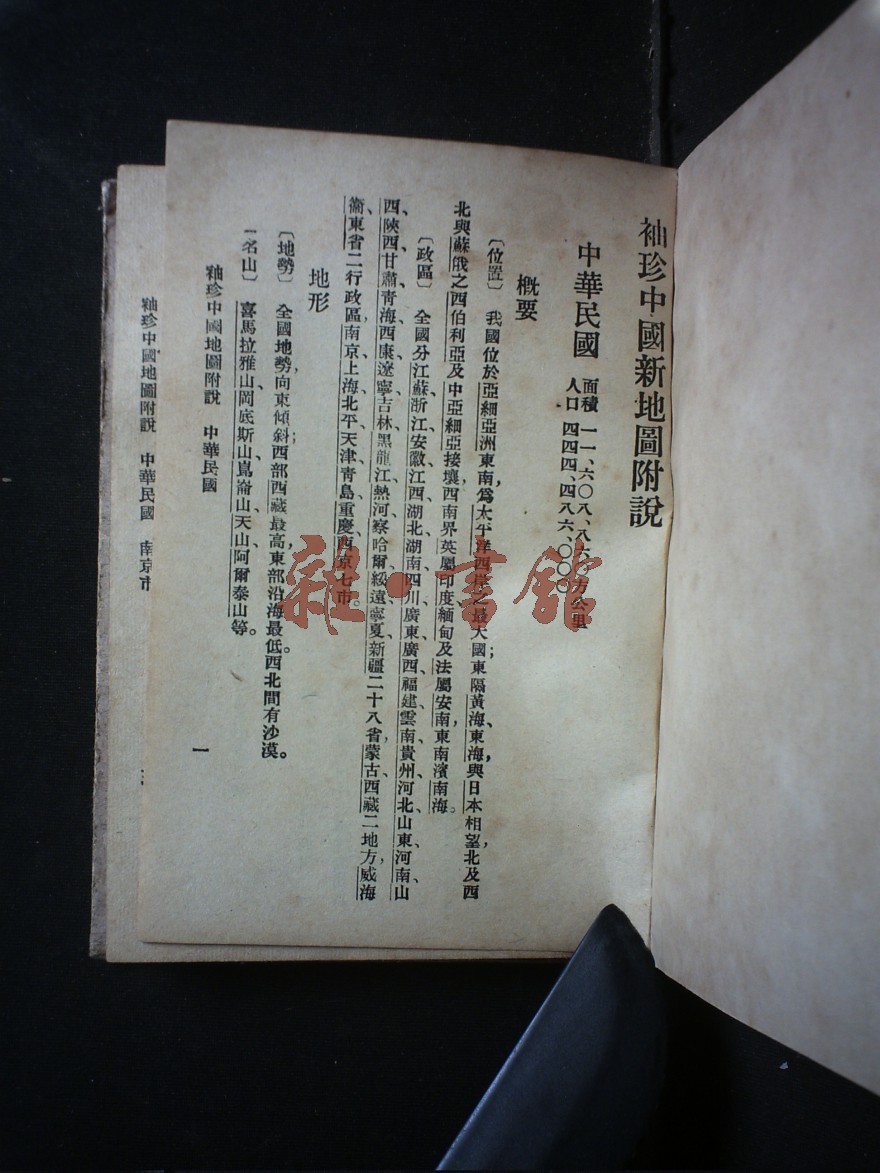 袖珍中國新地圖附說
中華民國
面積 一一、六〇八、八六 方公里
人口 四四四、四八六、〇〇〇
概要
〔位置〕 我國位於亞細亞洲東南,爲太平洋西岸之最大國;東隔黃海、東海,與日本相望,北及西
北與蘇俄之西伯利亞及中亞細亞接壤,西南界英屬印度緬甸及法屬安南,東南濱南海。
〔政區〕 全國分江蘇、浙江、安徽、江西、湖北、湖南、四川、廣東、廣西、福建、雲南、貴州、河北、山東、河南、山
西、陝西、甘肅、青海、西康、遼寧、吉林、黑龍江、熱河、察哈爾、綏遠、寧夏、新疆二十八省,蒙古、西藏二地方,威海
衞、東省二行政區,南京、上海、北平、天津、青島、重慶、西京七市。
地形
〔地勢〕 全國地勢,向東傾斜;西部西藏最高,東部沿海最低。西北間有沙漠。
〔名山〕 喜馬拉雅山、岡底斯山、崑崙山、天山、阿爾泰山等。
袖珍中國地圖附說 中華民國
一
袖珍中國地圖附說 中華民國 南京市
雜·書館